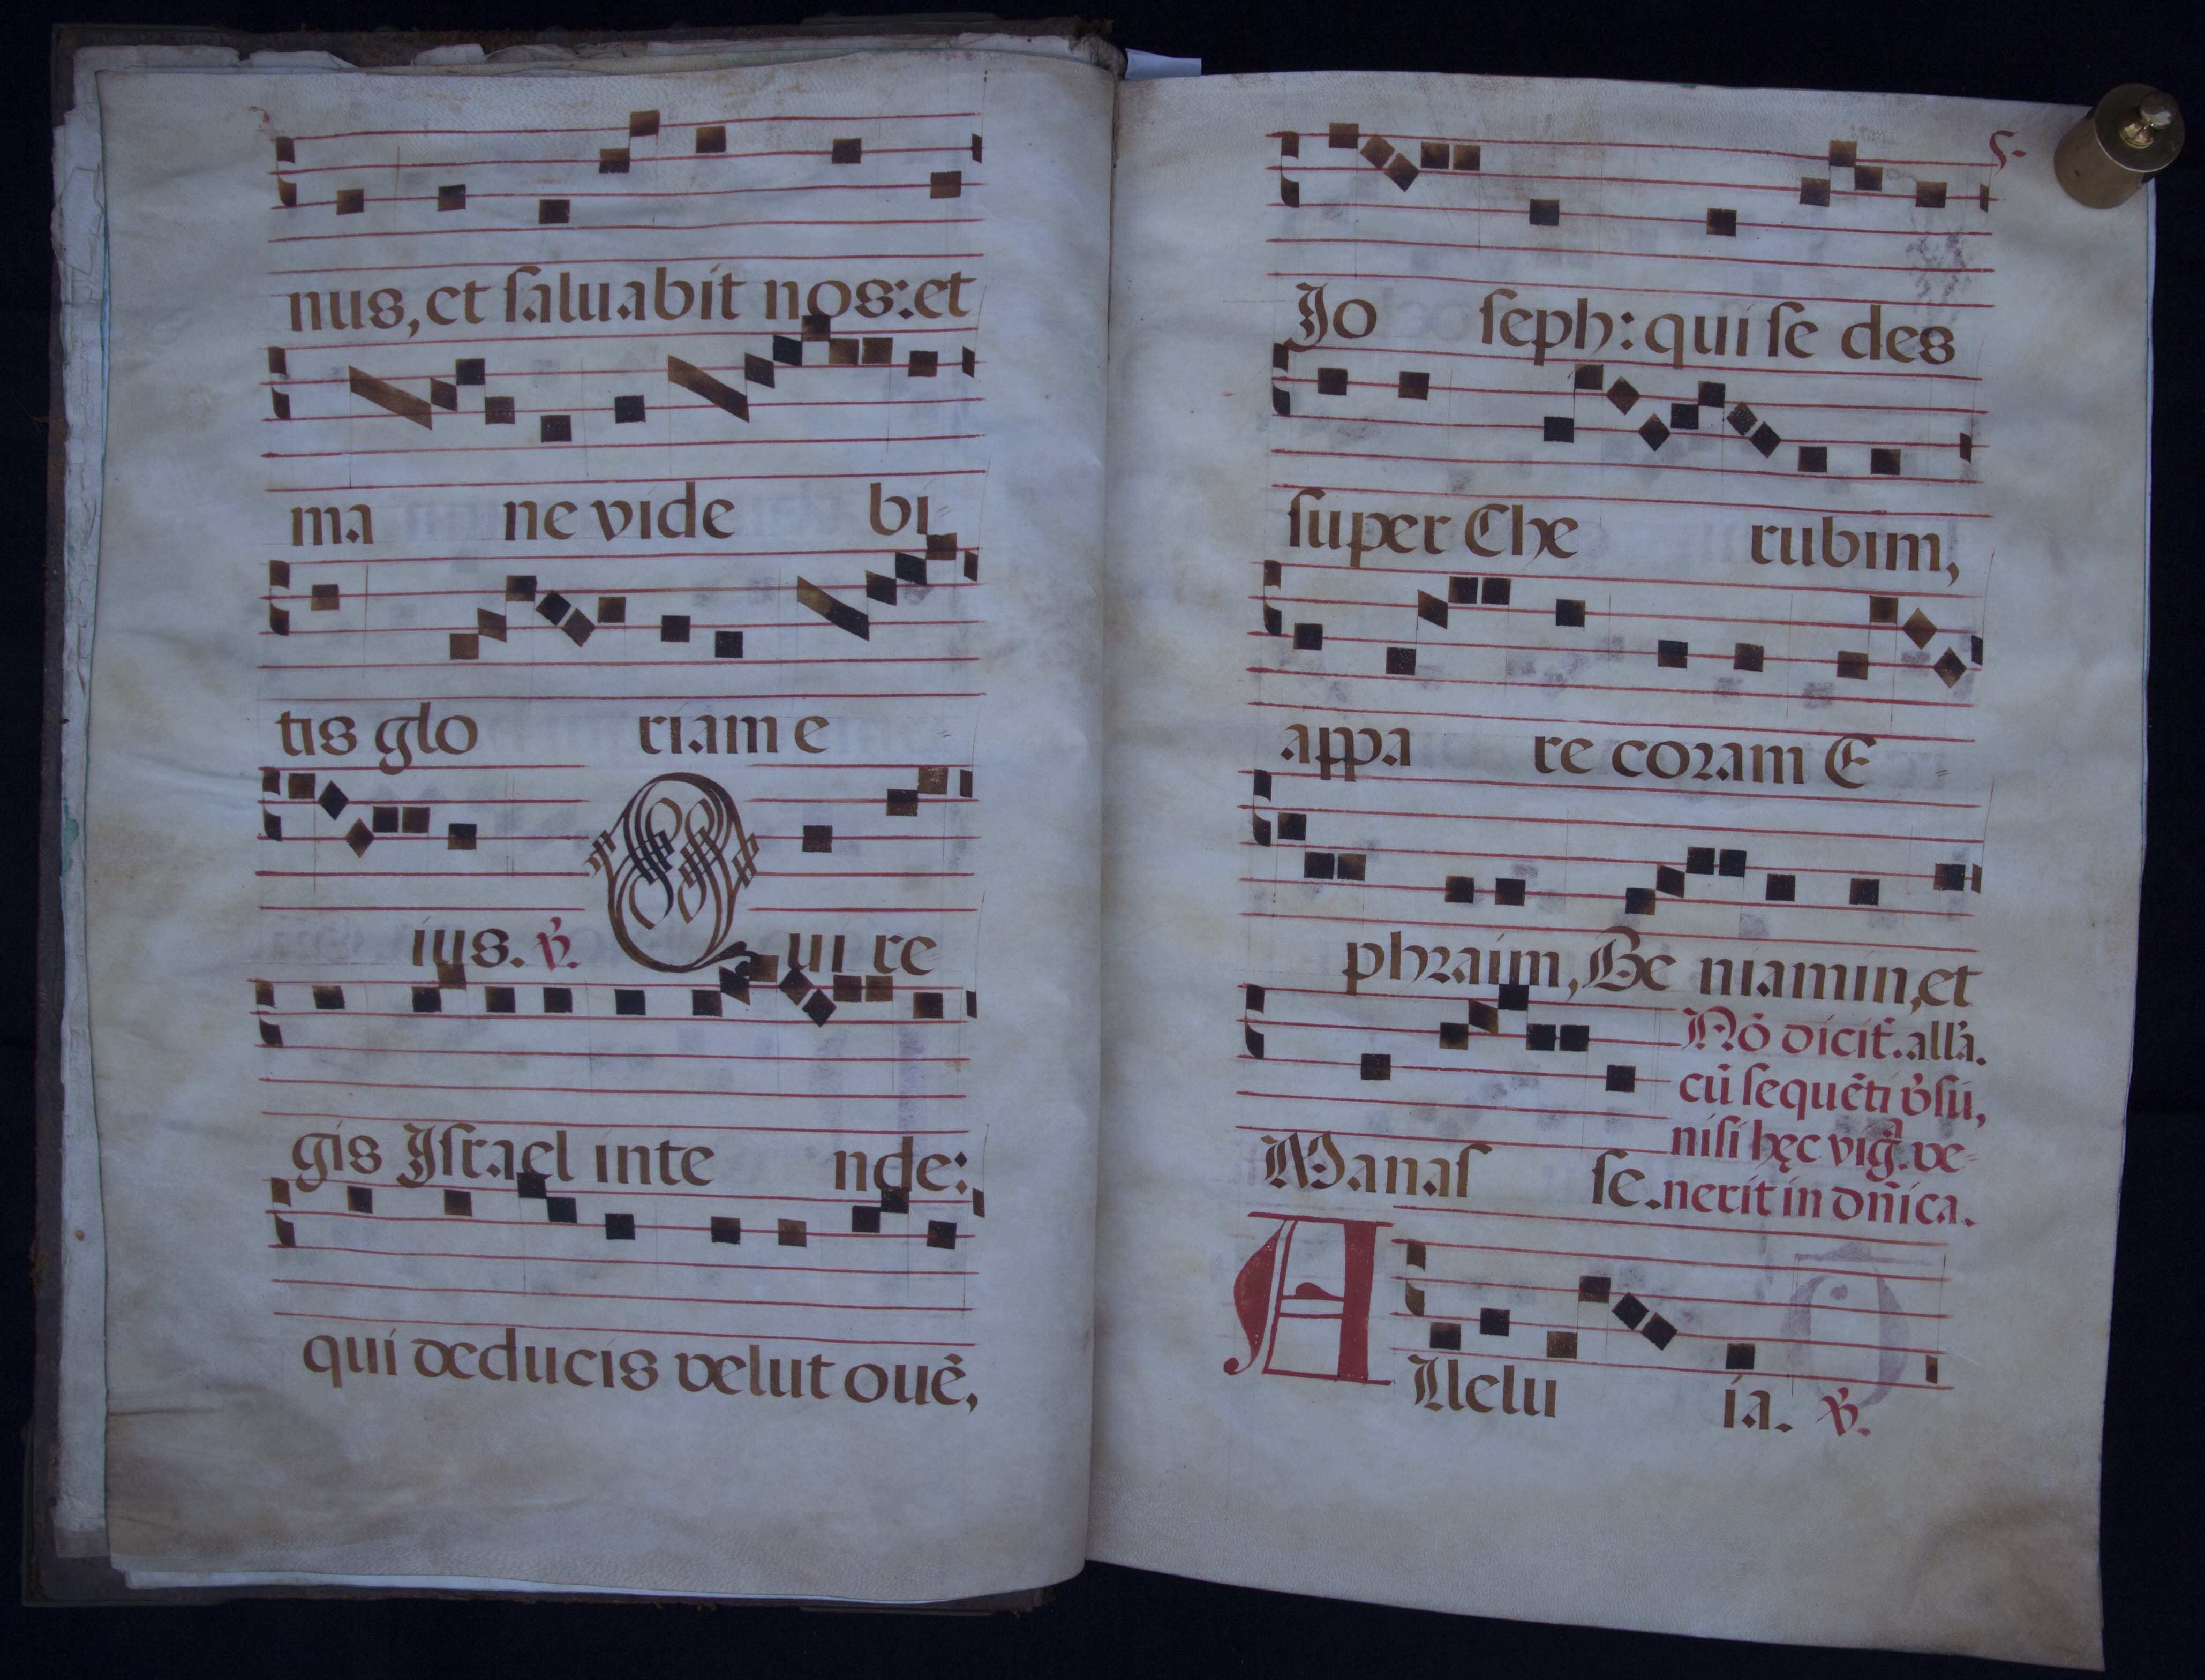 nus, et ſaluabit nos: et
ma ne vide bi
tis glo riam e
ius. ℣. Qui re
gis Iſrael inte nde:
qui deducis velut ouē,
5.
Jo ſeph: qui ſe des
ſuper Che rubim,
appa re coram E
phraim, Be niamin, et
Nō dicit̃. allã.
cū ſequēti v̓ſu,
niſi hęc vig̃. ve-
Manaſ ſe. nerit in dñica.
Allelu ia. ℣.